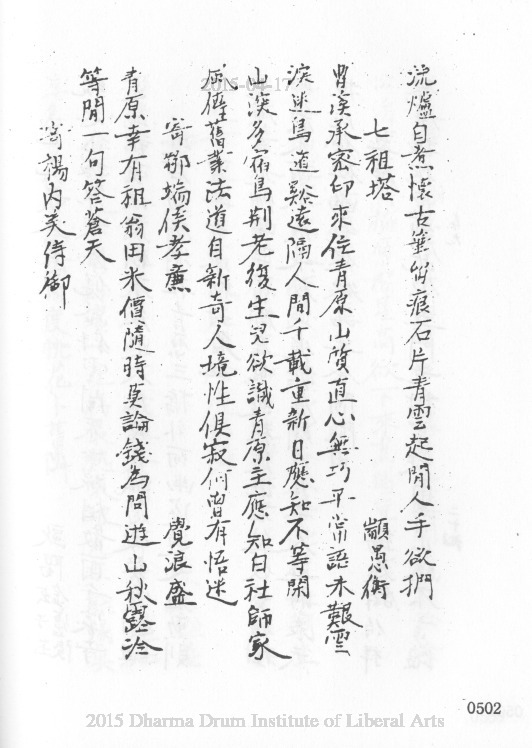 流爐自煮懷古壁留痕石片青雲起閒人手欲捫
七祖塔　顓愚衡
曹溪承密印來住青原山質直心無巧平常語未艱雲
深迷鳥道谿遠隔人間千載重新日應知不等閑
山深多宿鳥荆老復生兒欲識青原主應知白社師家
風仍舊業法道自新奇人境性俱寂何曾有悟迷
寄鄒端侯孝廉　覺浪盛
青原幸有祖翁田米價隨時莫論錢為問遊山秋露冷
等閒一句答蒼天
寄楊内美侍御
2015-04-17
0502
2015 Dharma Drum Institute of Liberal Arts